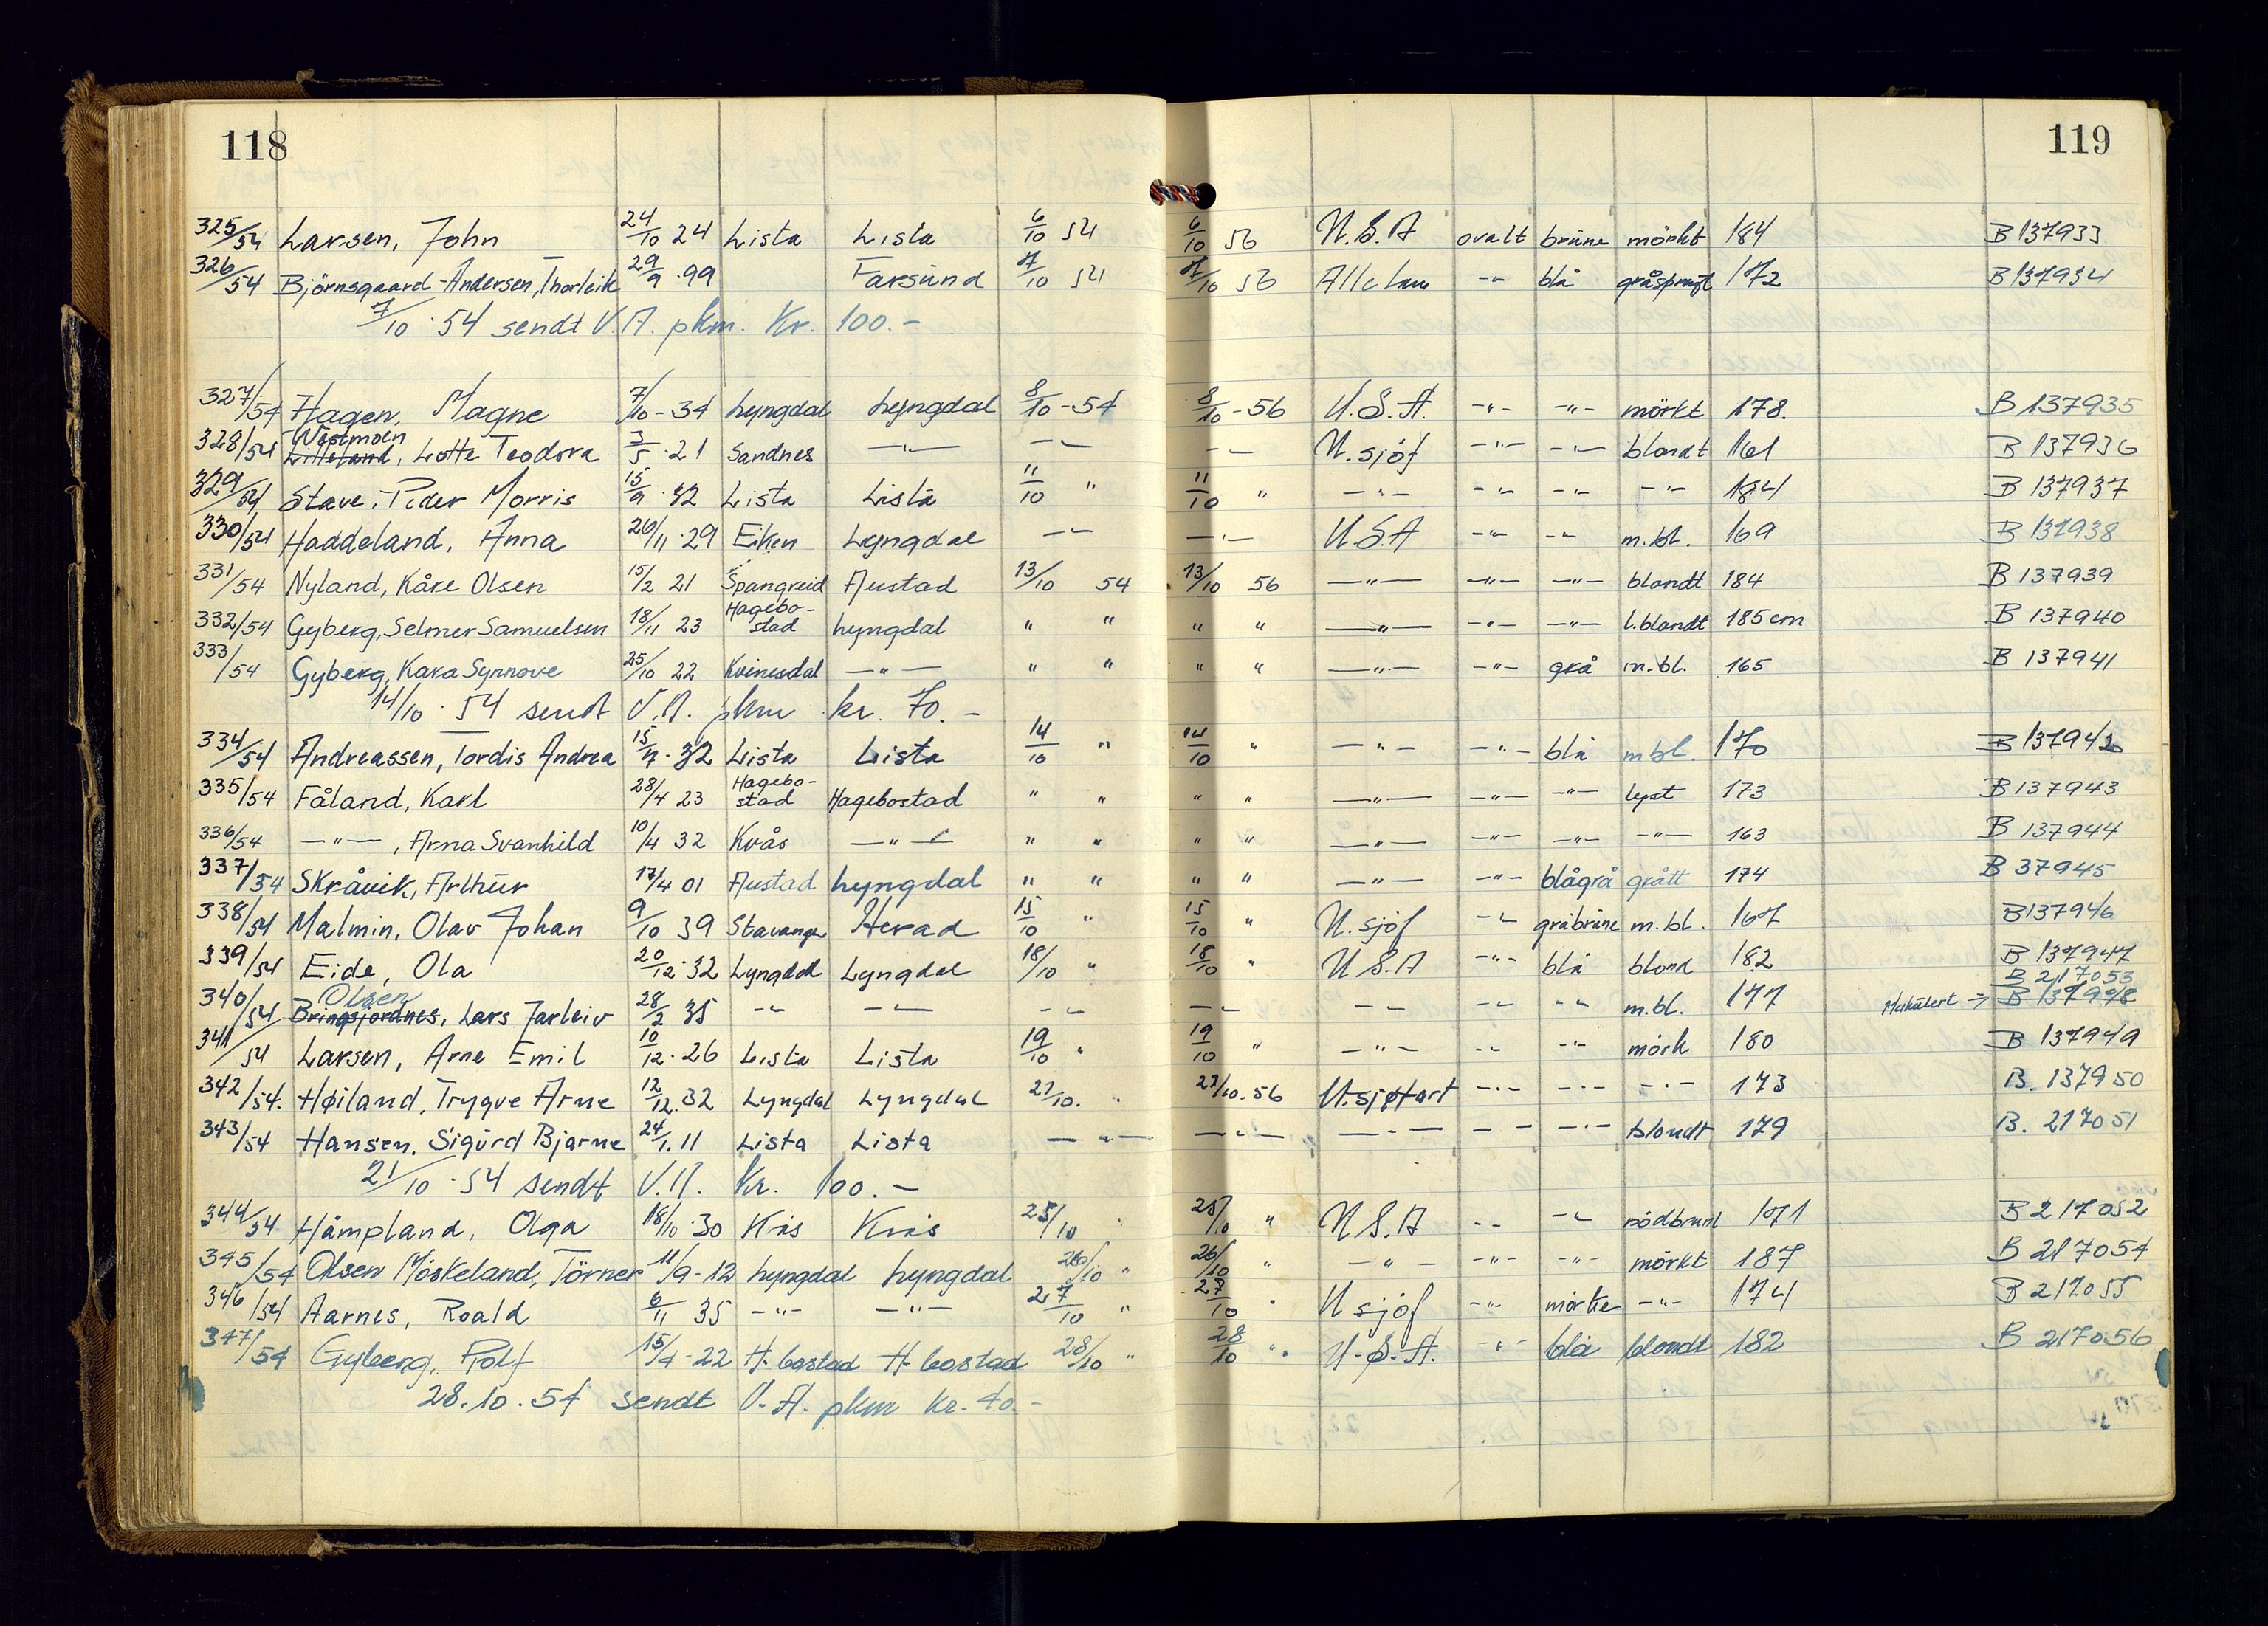 118
119
325/54 Larsen, John 24/10 24 Lista Lista 6/10 54 6/10 56 U.S.A ovalt brune mörkt 184 B 137933
326/54 Björnsgaard-Andersen, Thorleik 29/9 .99 Farsund 7/10 54 7/10 56 Alle lann -"- blå gråsprengt 172 B 137934
7/10 .54 sendt V.A. pkm. Kr. 100.-
327/54 Hagen, Magne 7/10 - 34 Lyngdal Lyngdal 8/10 - 54 8/10 - 56 U.S.A. -"- -"- mörkt 178. B 137935
Westmoen
328/54 Litleland, Lotte Teodora 3/5 .21 Sandnes -"- -"- -"- U.sjöf -"- -"- blondt 161 B 137936
329/54 Stave, Peder Morris 15/9 .32 Lista Lista 11/10 " 11/10 " -"- -"- -"- -"- 184 B 137937
330/54 Haddeland, Anna 26/11 .29 Eiken Lyngdal -"- -"- U.S.A -"- -"- m.bl. 169 B 137938
331/54 Nyland, Kåre Olsen 15/2 21 Spangreid Austad 13/10 54 13/10 56 -"- -"- -"- blondt 184 B 137939
332/54 Gyberg, Selmer Samuelsen 18/11 23 Hagebo-stad Lyngdal " " " " -"- -"- -"- l.blondt 185 cm B 137940
333/54 Gyberg, Kara Synnove 25/10 22 Kvinesdal -"- " " " " -"- -"- grå m.bl. 165 B 137941
14/10 .54 sendt V.A. pkm kr. 70.-
334/54 Andreassen, Tordis Andrea 15/7 .32 Lista Lista 14/10 " 14/10 " -"- -"- blå m bl. 170 B 137942
335/54 Fåland, Karl 28/4 23 Hagebo-stad Hagebostad " " " " -"- -"- -"- lyst 173 B 137943
336/54 -"-, Arna Svanhild 10/4 32 Kvås -"- " " " " -"- -"- -"- -"- 163 B 137944
337/54 Skråvik, Arthur 17/4 01 Austad Lyngdal " " " " -"- -"- blågrå grått 174 B 37945
338/54 Malmin, Olav Johan 9/10 39 Stavanger Herad 15/10 " 15/10 " U.sjöf -"- gråbrune m.bl. 167 B137946
339/54 Eide, Ola 20/12 .32 Lyngdal Lyngdal 18/10 " 18/10 " U S.A -"- blå blond 182 B 137947
Olsen B 217053
340/54 Bringsjordnes, Lars Jarleiv 28/2 35 -"- -"- -"- -"- -"- -"- -"- m.bl. 177 Makulert → B 137948
341/54 Larsen, Arne Emil 10/12 .26 Lista Lista 19/10 " 19/10 " -"- -"- -"- mörk 180 B 137949
342/54. Høiland, Trygve Arne 12/12.32 Lyngdal Lyngdal 21/10. " 21/10.56 U.sjøfart -"- -"- -"- 173 B. 137950
343/54 Hansen, Sigurd Bjarne 24/1.11 Lista Lista -"- -"- -"- -"- -"- blondt 179 B. 217051
21/10 .54 sendt V.A. Kr. 100.-
344/54 Håmpland, Olga 18/10 .30 Kvås Kvås 25/10 " 25/10 " U.S.A -"- -"- rödbrunt 171 B 217052
345/54 Olsen Möskeland, Törner 11/9 - 12 Lyngdal Lyngdal 26/10 " 26/10 " -"- -"- -"- mörkt 187 B 217054
346/54 Aarnes, Roald 6/11 35 -"- -"- 27/10 " 27/10 " U sjöf -"- mörke -"- 174 B 217055
347/54 Gyberg, Rolf 15/4 - 22 H-bostad H-bostad 28/10 " 28/10 " U.S.A. -"- blå blondt 182 B 217056
28.10.54 sendt V.A. pkm kr. 40.-